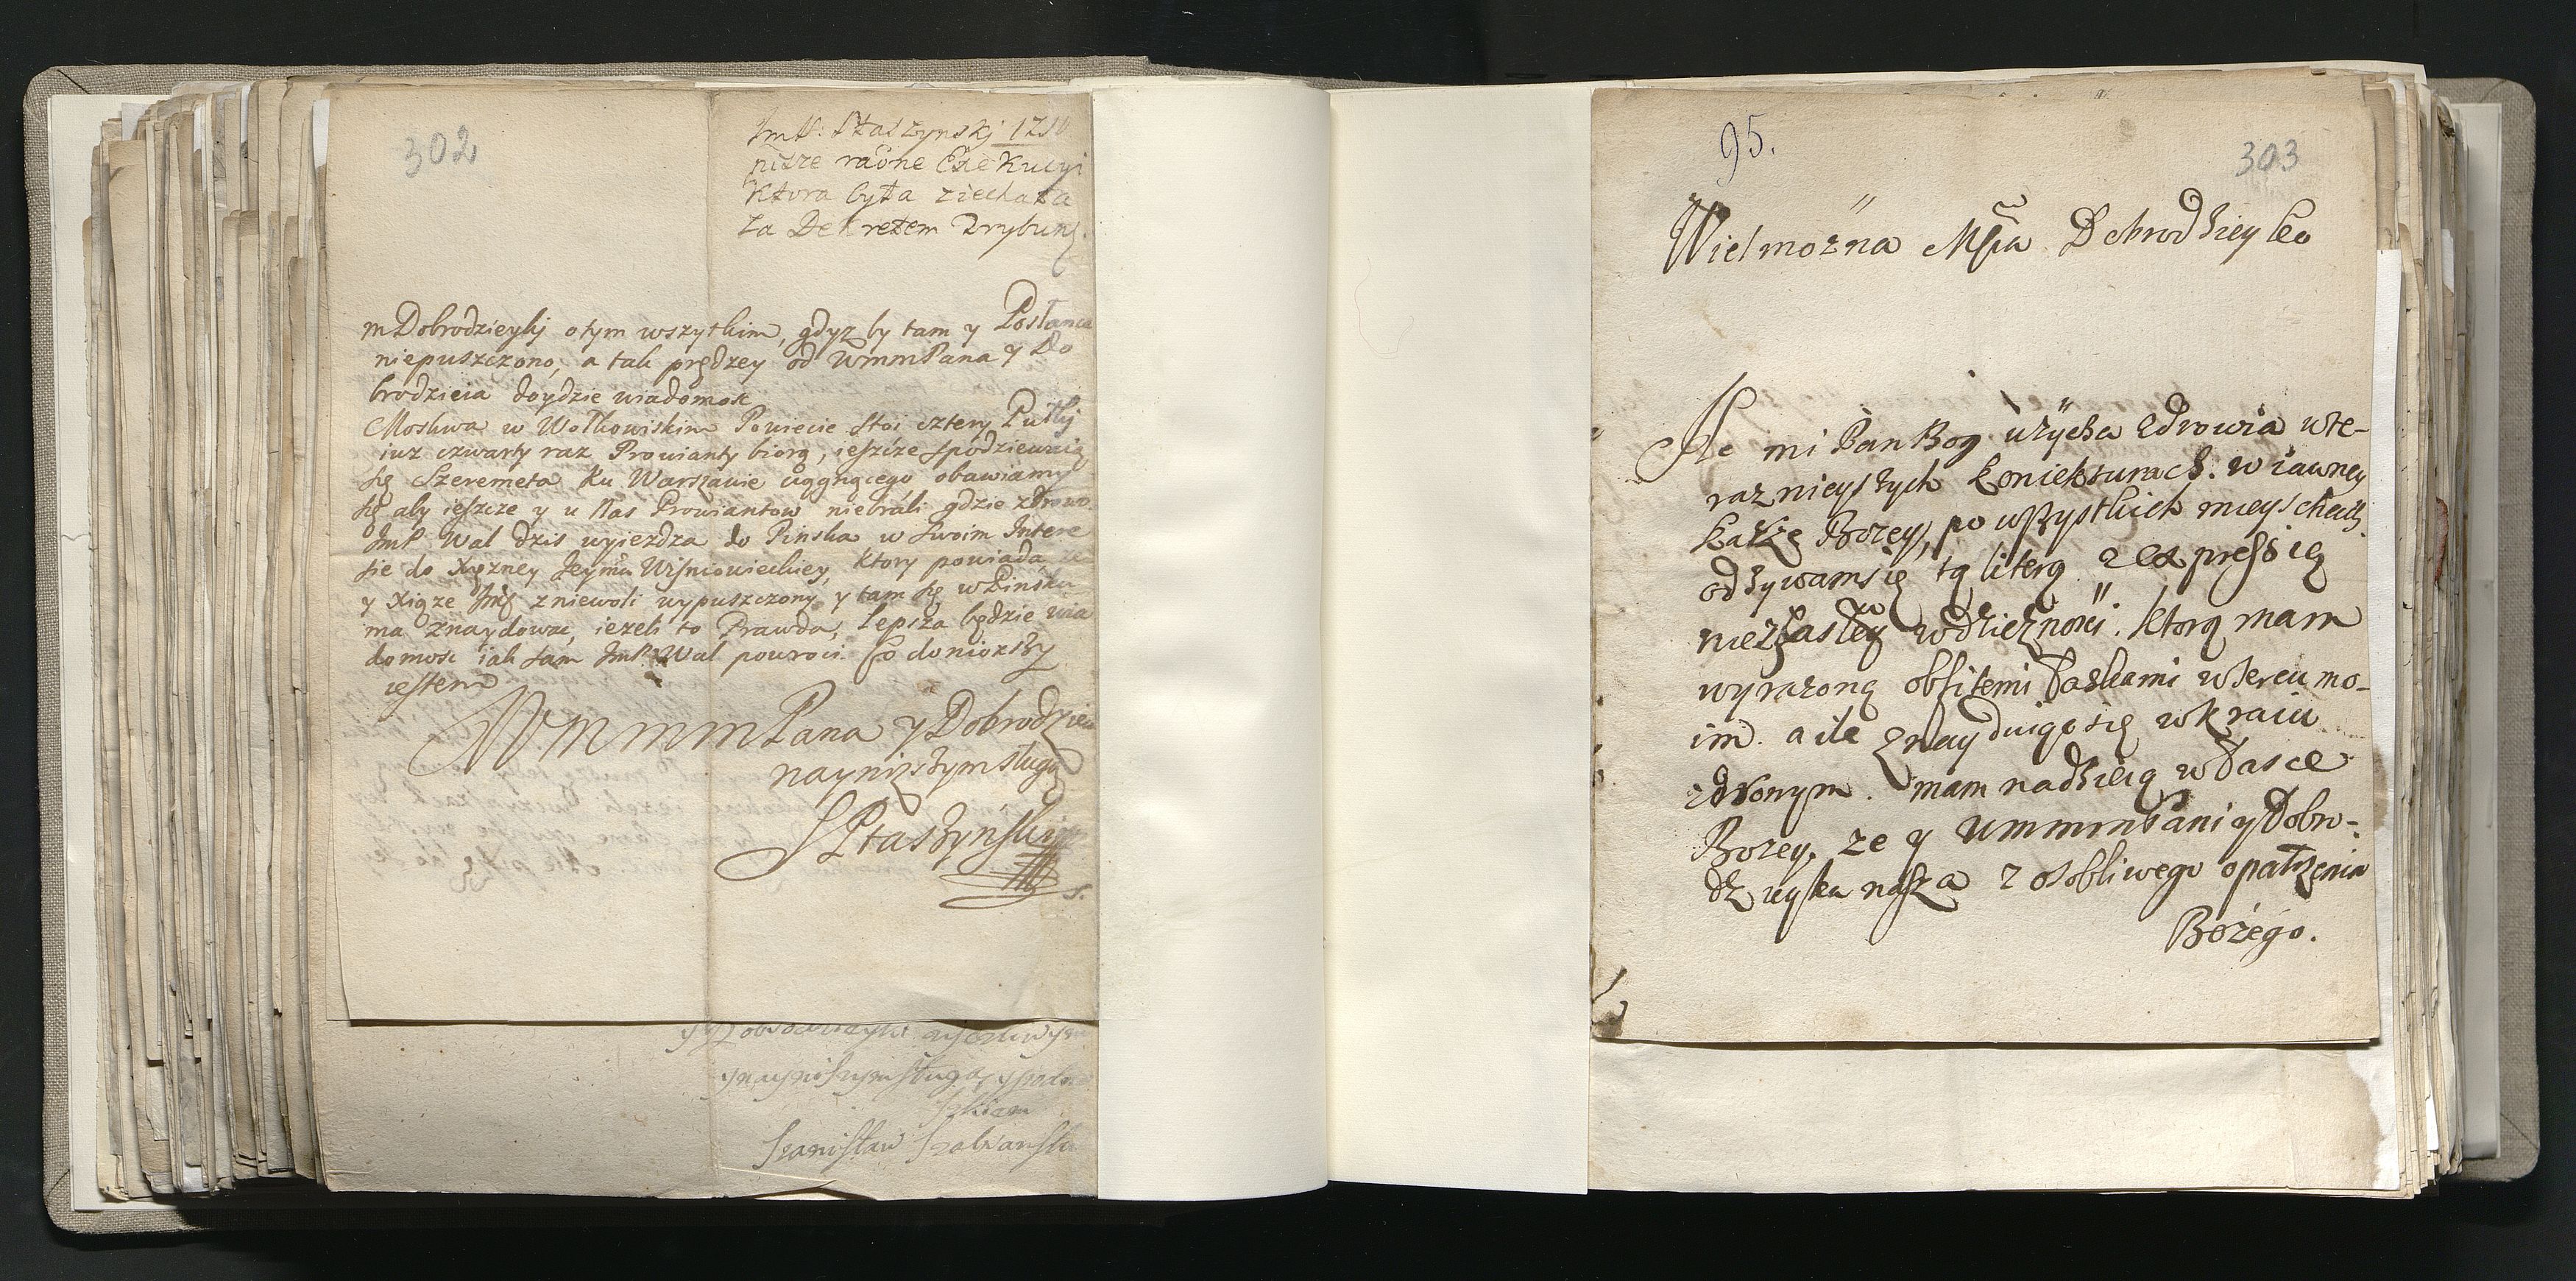 302
ImP: Ptaszynskj 1710
pisze racone Exekucyi
Ktora była ziechała
Za Dekretem Trybun.
mDobrodzieykj otym wszytkim, gdyz by tam y Posłanca
niepuszczono, a tak prędzey od WmmPana y Do
brodzieia doydzie wiadomosc
Moskwa w Wołkowiskim Powiecie stoi cztery Pułkj
iuz czwarty raz Prowianty biorą, ieszcze spodziewaią
się Szeremeta Ku Warszawie ciągnącego obawiamy
się aby ieszcze y u Nas Prowiantow niebrali gdzie zdrowo
ImP Wal dzis wyiezdza do Pinska w swoim Intere
sie do Xiężney Jeymci Wiśniowieckiey, Ktory powiada ze
y Xiąze Jmś zniewoli wypuszczony y tam się wPinsku
ma znaydowac, iezeli to Prawda, lepsza będzie wia
domosc iak sam ImP Wal powroci. Co doniozszy
iestem
WMmmPana y Dobrodzieia
naynizszym sługą
SPtaszyński
s.
y naynizszym sługą y podno
szkiem
Stanisław
95.
303
Wielmozna Mścia Dobrodzieyko
Ile mi Pan Bog uzycza zdrowia wte-
raznieyszych koniekturach. w iawney
każę Bozey, po wszystkich mieyscach
odzywamsię tą literą z expressią
niezgasłey wdzięcznosci. Ktorą mam
wyrazoną obfitemi łaskami wsercu mo-
im. a ile znayduiąc się wkraiu
zdronym. mam nadzieią w łasce
Bozey, ze y WmmmPani y Dobro-
dzieyka nasza z osobliwego opatrzenia
Bozego.